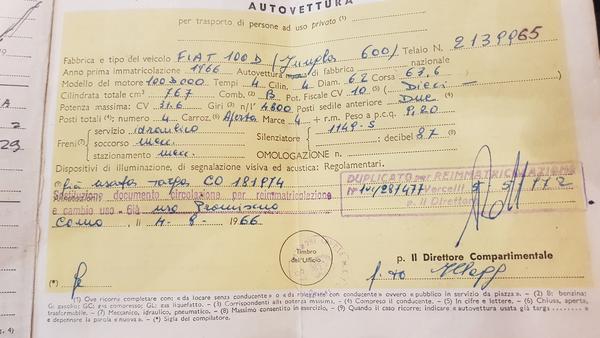 AUTOVETTURA
per trasporto di persone ad uso privato (1)
Fabbrica e tipo del veicolo FIAT 100 D (Jungla 600) Telaio N. 2139965
Anno prima immatricolazione 1966 Autovettura di fabbrica nazionale
Modello del motore 100D000 Tempi 4 Cilin. 4 Diam. 62 Corsa 63.6
Cilindrata totale cm³ 767 Comb. (2) B Pot. Fiscale CV 10 (5) ( Dieci )
Potenza massima: CV 31.6 Giri (3) n/1' 4800 Posti sedile anteriore Due
Posti totali (4): numero 4 Carroz. (6) Aperta Marce 4 + r.m. Peso a p.c.q. 9.20
Freni (7) servizio idraulico Silenziatore 1149-S : decibel 87 (8)
soccorso mecc.
stazionamento mecc. OMOLOGAZIONE n.
Dispositivi di illuminazione, di segnalazione visiva ed acustica: Regolamentari.
(9) Già usata targa CO 181974
DUPLICATO per REIMMATRICOLAZIONE
Sostituzione documento circolazione per reimmatricolazione
N° Vercelli
e cambio uso - Già uso Promiscuo
p. Il Direttore
Como, lì 4-8-1966
Timbro
dell'Ufficio.
p. Il Direttore Compartimentale
(*)
f.to
(1) Ove ricorra completare con: «da locare senza conducente» o «da noleggiare con conducente» ovvero «pubblico in servizio da piazza». - (2) B: benzina:
G: gasolio; GC: gas compresso; GL: gas liquefatto. - (3) Corrispondenti alla potenza massima. - (4) Compreso il conducente. - (5) In cifre e lettere. - (6) Chiusa, aperta,
trasformabile. - (7) Meccanico, idraulico, pneumatico. - (8) Massimo consentito in esercizio. - (9) Quando il caso ricorre: indicare «autovettura usata già targ
e depennare la parola «nuova». - (*) Sigla del compilatore.